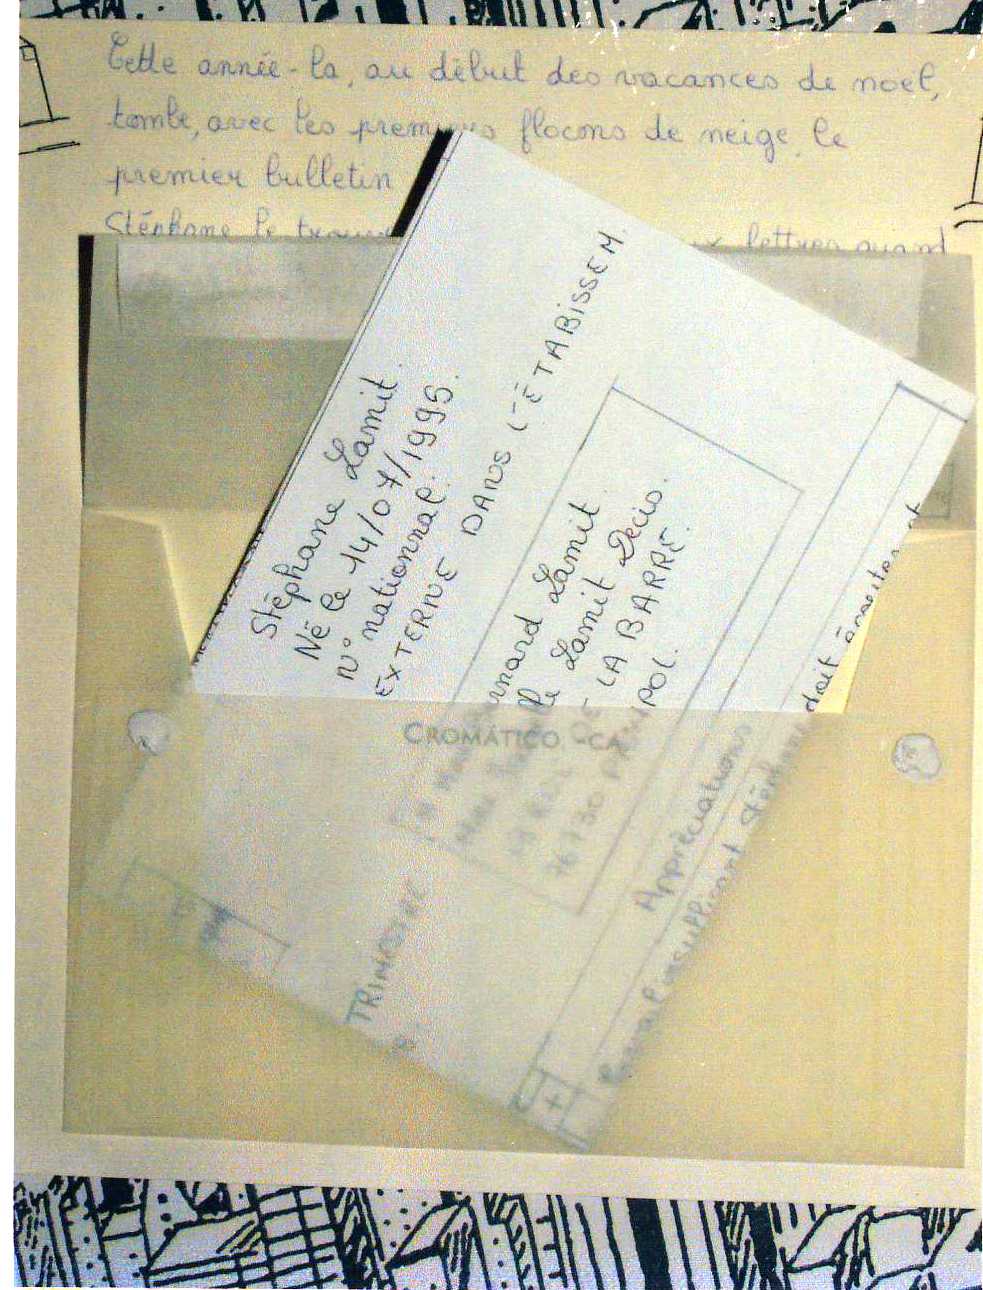 Cette année-la, au début des vacances de noel,
tombe, avec les premiers flocons de neige, le
premier bulletin
Stéphane le lettres quand
Stéphane Lamit.
Né le 14/07/1995.
N° nationnal.
EXTERNE DANS L'ÉTABISSEM.
Bernard Lamit
Lamit Decis.
LA BARRE.
76730
POL.
CROMÁTICO -CA
TRIMESTRE
Appréciations
+
Travail insuffisant Stéphane doit écouter et